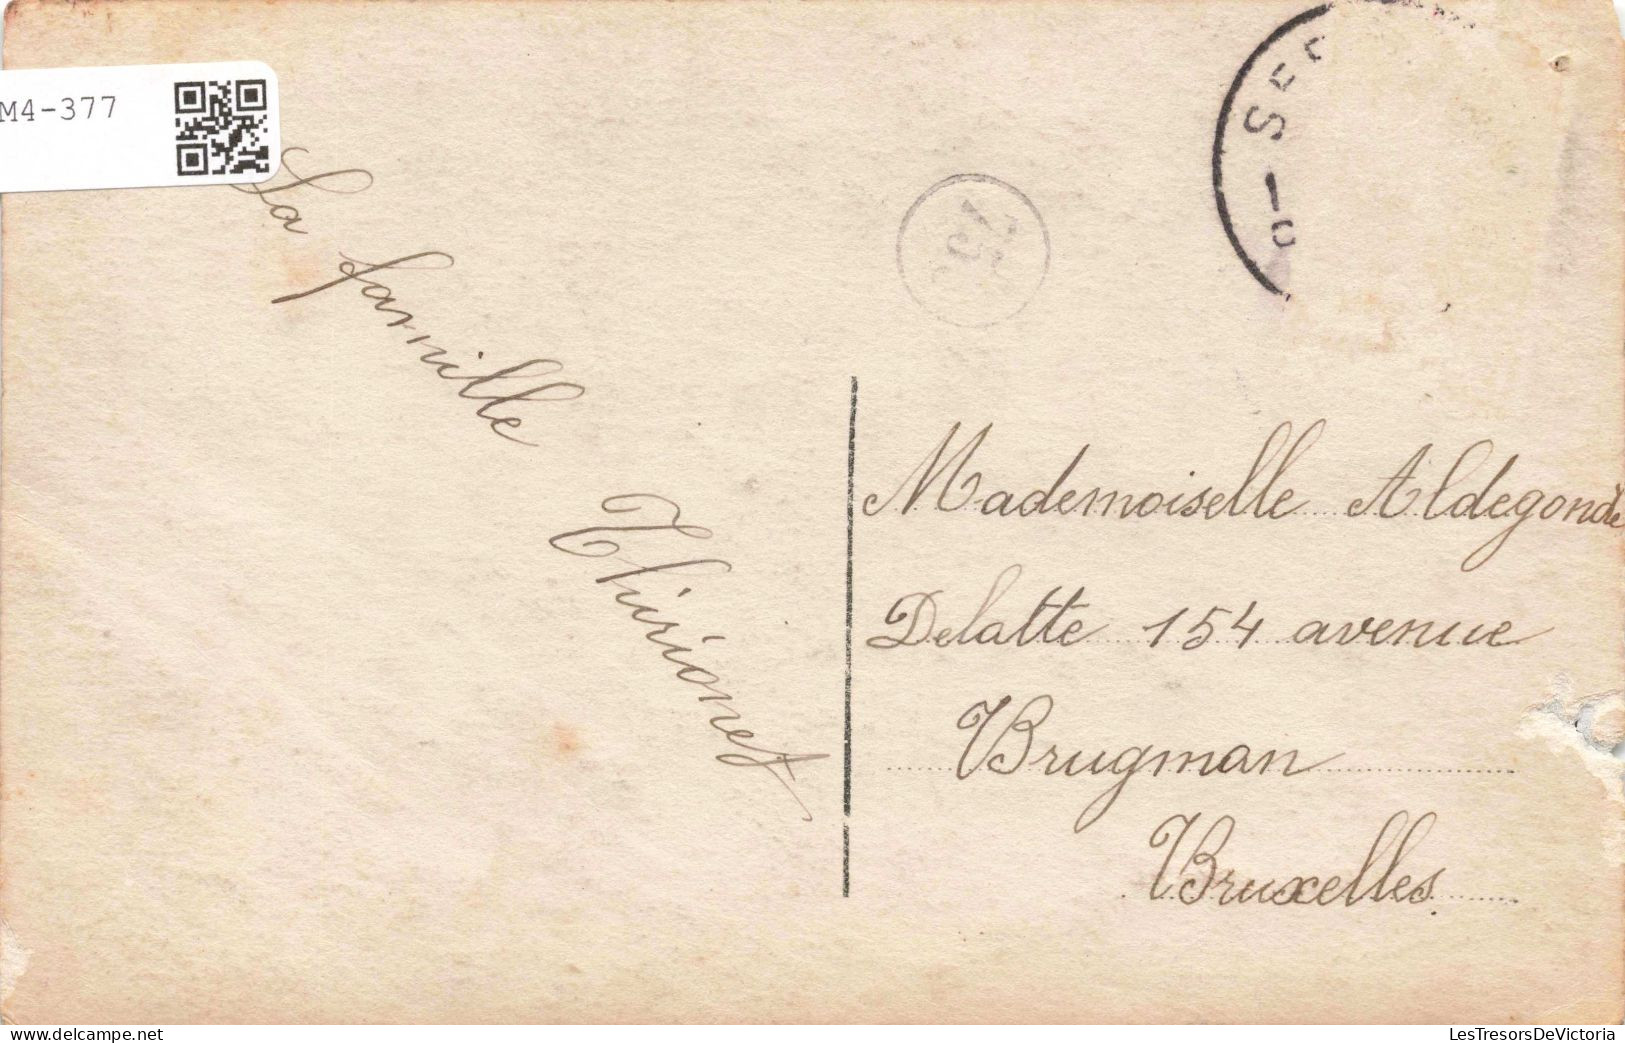 M4-377
La famille
Thirionet
Mademoiselle Aldegonde
Delatte 154 avenue
Brugman
Bruxelles
LesTresorsDeVictoria
delcampe.net